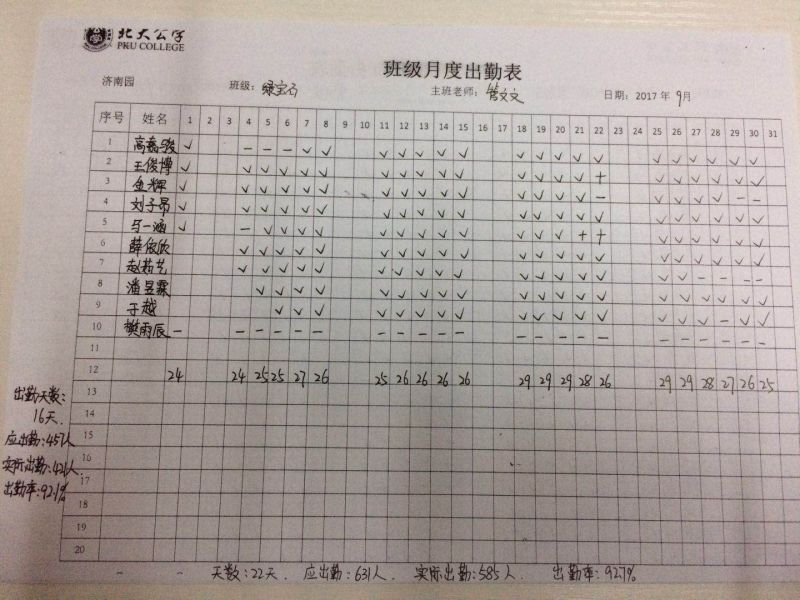 北大公学
PKU COLLEGE
班级月度出勤表
济南园 班级：绿宝石 主班老师：管文文 日期：2017 年 9月
序号 姓名 1 2 3 4 5 6 7 8 9 10 11 12 13 14 15 16 17 18 19 20 21 22 23 24 25 26 27 28 29 30 31
1 高 骏 ✓ − − − ✓ ✓ ✓ ✓ ✓ ✓ ✓ ✓ ✓ ✓ ✓ ✓ ✓ ✓ ✓ ✓ ✓ ✓
2 王俊博 ✓ ✓ ✓ ✓ ✓ ✓ ✓ ✓ ✓ ✓ ✓ ✓ ✓ ✓ ✓ + ✓ ✓ ✓ ✓ ✓ ✓
3 金辉 ✓ ✓ ✓ ✓ ✓ ✓ ✓ ✓ ✓ ✓ ✓ ✓ ✓ ✓ ✓ − ✓ ✓ ✓ ✓ − −
4 刘子昂 ✓ ✓ ✓ ✓ ✓ ✓ ✓ ✓ ✓ ✓ ✓ ✓ ✓ ✓ ✓ ✓ ✓ ✓ ✓ ✓ ✓ ✓
5 马一涵 ✓ − ✓ ✓ ✓ ✓ ✓ ✓ ✓ ✓ ✓ ✓ ✓ ✓ + + ✓ ✓ ✓ ✓ ✓ ✓
6 薛依欣 ✓ ✓ ✓ ✓ ✓ ✓ ✓ ✓ ✓ ✓ ✓ ✓ ✓ ✓ ✓ ✓ ✓ ✓ ✓ ✓ ✓
7 赵茹艺 ✓ ✓ ✓ ✓ ✓ ✓ ✓ ✓ ✓ ✓ ✓ ✓ ✓ ✓ ✓ ✓ ✓ − − − −
8 潘昱霖 ✓ ✓ ✓ ✓ ✓ ✓ ✓ ✓ ✓ ✓ ✓ ✓ ✓ ✓ ✓ ✓ ✓ ✓ ✓ ✓
9 于越 ✓ ✓ ✓ ✓ ✓ ✓ ✓ ✓ ✓ ✓ ✓ ✓ ✓ ✓ ✓ ✓ − ✓ ✓
10 樊雨辰 − − − − − − − − − − − − − − − − − − − − − −
11
12 24 24 25 25 27 26 25 26 26 26 26 29 29 29 28 26 29 29 28 27 26 25
13
出勤天数：
14
16天.
15
应出勤：457人
16
实际出勤：421人.
17
出勤率：92.1%
18
19
20
天数：22天. 应出勤：631人. 实际出勤：585人. 出勤率：92.7%